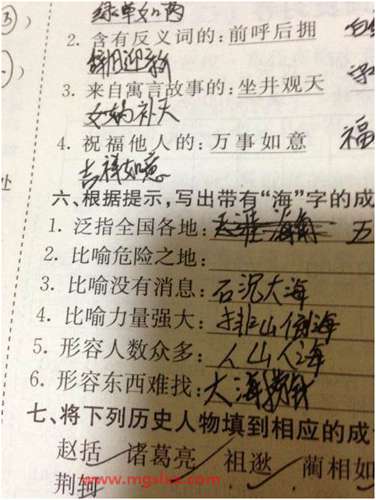 2. 含有反义词的: 前呼后拥
辞旧迎新
3. 来自寓言故事的: 坐井观天
女娲补天
4. 祝福他人的: 万事如意 福
吉祥如意
六、根据提示,写出带有“海”字的成
1. 泛指全国各地: 天涯海角 五
2. 比喻危险之地:
3. 比喻没有消息: 石沉大海
4. 比喻力量强大: 排山倒海
5. 形容人数众多: 人山人海
6. 形容东西难找: 大海捞针
七、将下列历史人物填到相应的成
赵括 诸葛亮 祖逖 蔺相如
荆轲 www.mgslxs.com